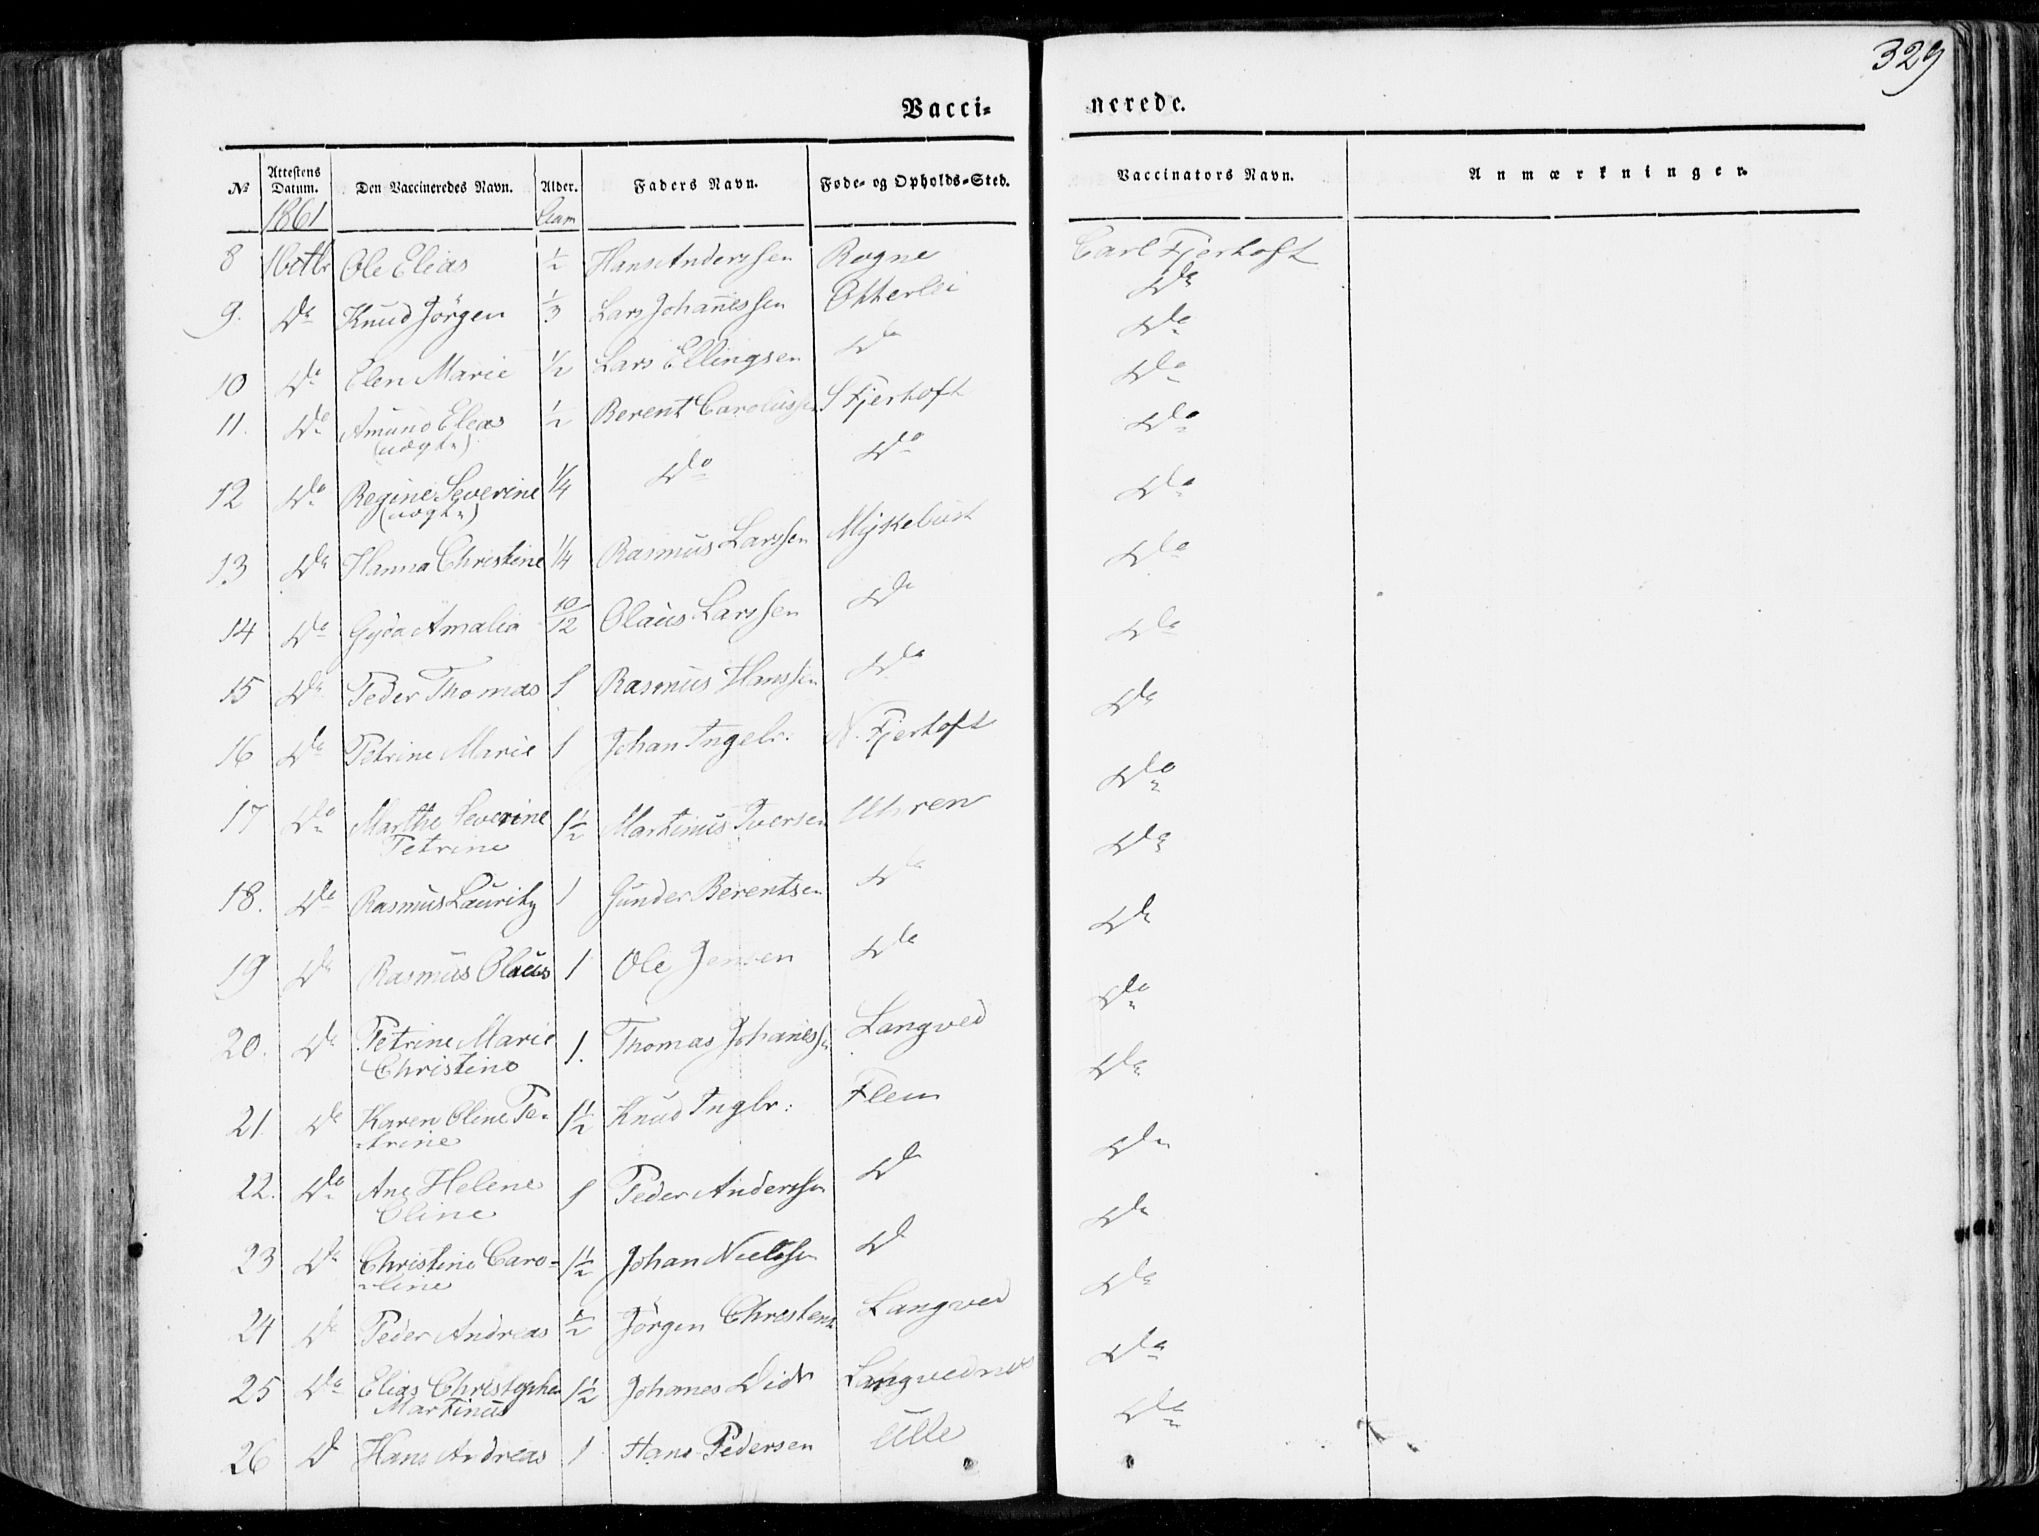 329
Vacci= nerede.
No Attestens Datum. Den Vaccineredes Navn. Alder. Faders Navn. Fode- og Opholds-Sted. Vaccinators Navn. Anmærkninger.
1861 Aar
8 16 Ole Elias 1/2 Hans Anderssen Rogne Carl Fjerhoft
9. Do Knud Jörgen 1/3 Lars Johanessen Otterlei Do
10 Do Elen Marie 1/2 Lars Ellingsen Do Do
11. Do Amund Elias 1/2 Berent Carolussen S Fjerhoft Do
(uægte)
12 Do Regine Severine 1/4 Do Do Do
(uægte)
13 Do Hanna Christine 1/4 Rasmus Larssen Myklebust Do
14 Do Gyda Amalia 10/12 Olaus Larssen Do Do
15 Do Peder Thomas 1 Rasmus Hanssen Do Do
16 Do Petrine Marie 1 Johan Ingebr: N. Fjerhoft Do
17 Do Marthe Severine 1 1/2 Martinus Iversen Uhren Do
Petrine
18. Do Rasmus Lauritz 1 Gunder Berentsen Do Do
19 Do Rasmus Olaus 1 Ole Jensen Do Do
20. Do Petrine Marie 1. Thomas Johaness. Langved Do
Christine
21. Do Karen Oline Pe- 1 1/2 Knud Ingbr: Flem Do
trine
22. Do Ane Helene 1 Peder Anderssen Do Do
Oline
23 Do Christine Caro- 1 1/2 Johan Nielssen Do Do
line
24 Do Peder Andreas 1/2 Jörgen Christens. Langved Do
25 Do Elias Christopher 1 1/2 Johanes Didr Langvednes Do
Martinus
26 Do Hans Andreas 1 Hans Pedersen Ulle Do